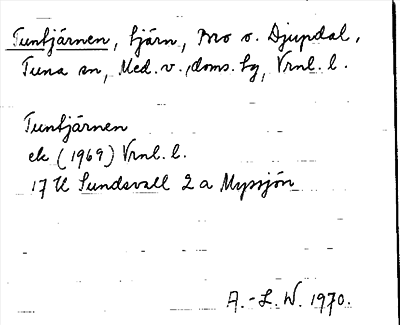 Tuntjärnen, tjärn, Mo o. Djupdal,
Tuna sn, Med. v., doms. hg, Vrnl. l.
Tuntjärnen
ek (1969) Vrnl. l.
17 H Sundsvall 2 a Myssjön
A.-L. W. 1970.